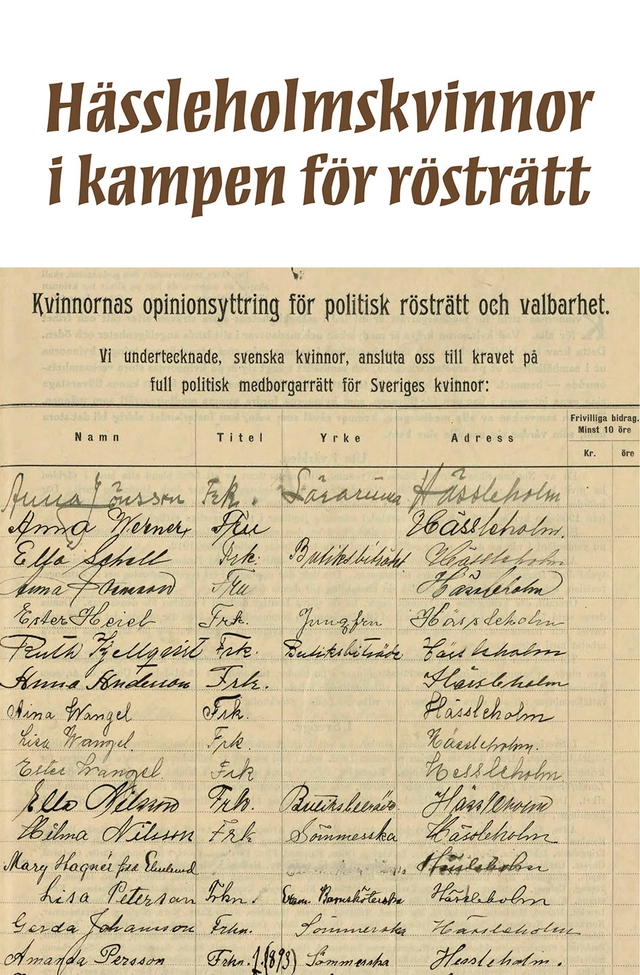 Hässleholmskvinnor
i kampen för rösträtt
Kvinnornas opinionsyttring för politisk rösträtt och valbarhet.
Vi undertecknade, svenska kvinnor, ansluta oss till kravet på
full politisk medborgarrätt för Sveriges kvinnor:
Frivilliga bidrag.
Minst 10 öre
Namn Titel Yrke Adress Kr. öre
Anna Jönsson Frk. Lärarinna Hässleholm
Anna Werner Fru Hässleholm.
Elfa Schell Frk. Butiksbiträde Hässleholm
Anna Fru Hässleholm
Ester Heieb Frk. Jungfru Hässleholm
Ruth Kjellqvist Frk. Butiksbiträde Hässleholm
Anna Anderson Frk. Hässleholm
Aina Wangel Frk. Hässleholm
Lisa Wangel. Frk. Hässleholm.
Ester Wangel. Frk Hessleholm.
Ella Nilsson Frk. Hässleholm
Hilma Nilsson Frk Sömmerska Hässleholm
Mary Hagnér född Hässleholm
Lisa Peterson Frkn. Exam Barnsköterska Hässleholm
Gerda Johansson Frkn. Sömmerska Hässleholm
Amanda Persson Frkn. (1893) Sömmerska Hessleholm.